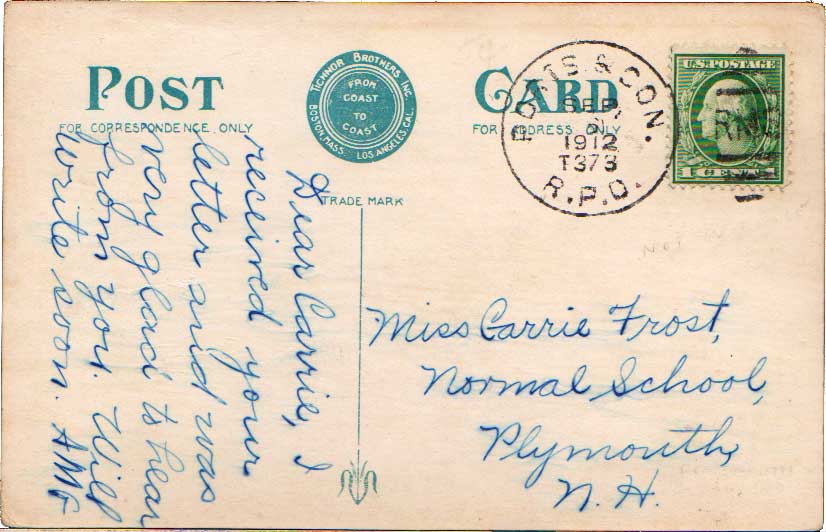 POST CARD
FOR CORRESPONDENCE ONLY
FOR ADDRESS ONLY
TICHNOR BROTHERS INC.
BOSTON, MASS. LOS ANGELES, CAL.
FROM
COAST
TO
COAST
TRADE MARK
& CON.
SEP
1912
T373
R.P.O.
U.S. POSTAGE
Dear Carrie, I
received your
letter and was
very glad to hear
from you. Will
write soon. AMG
Miss Carrie Frost,
Normal School,
Plymouth,
N.H.